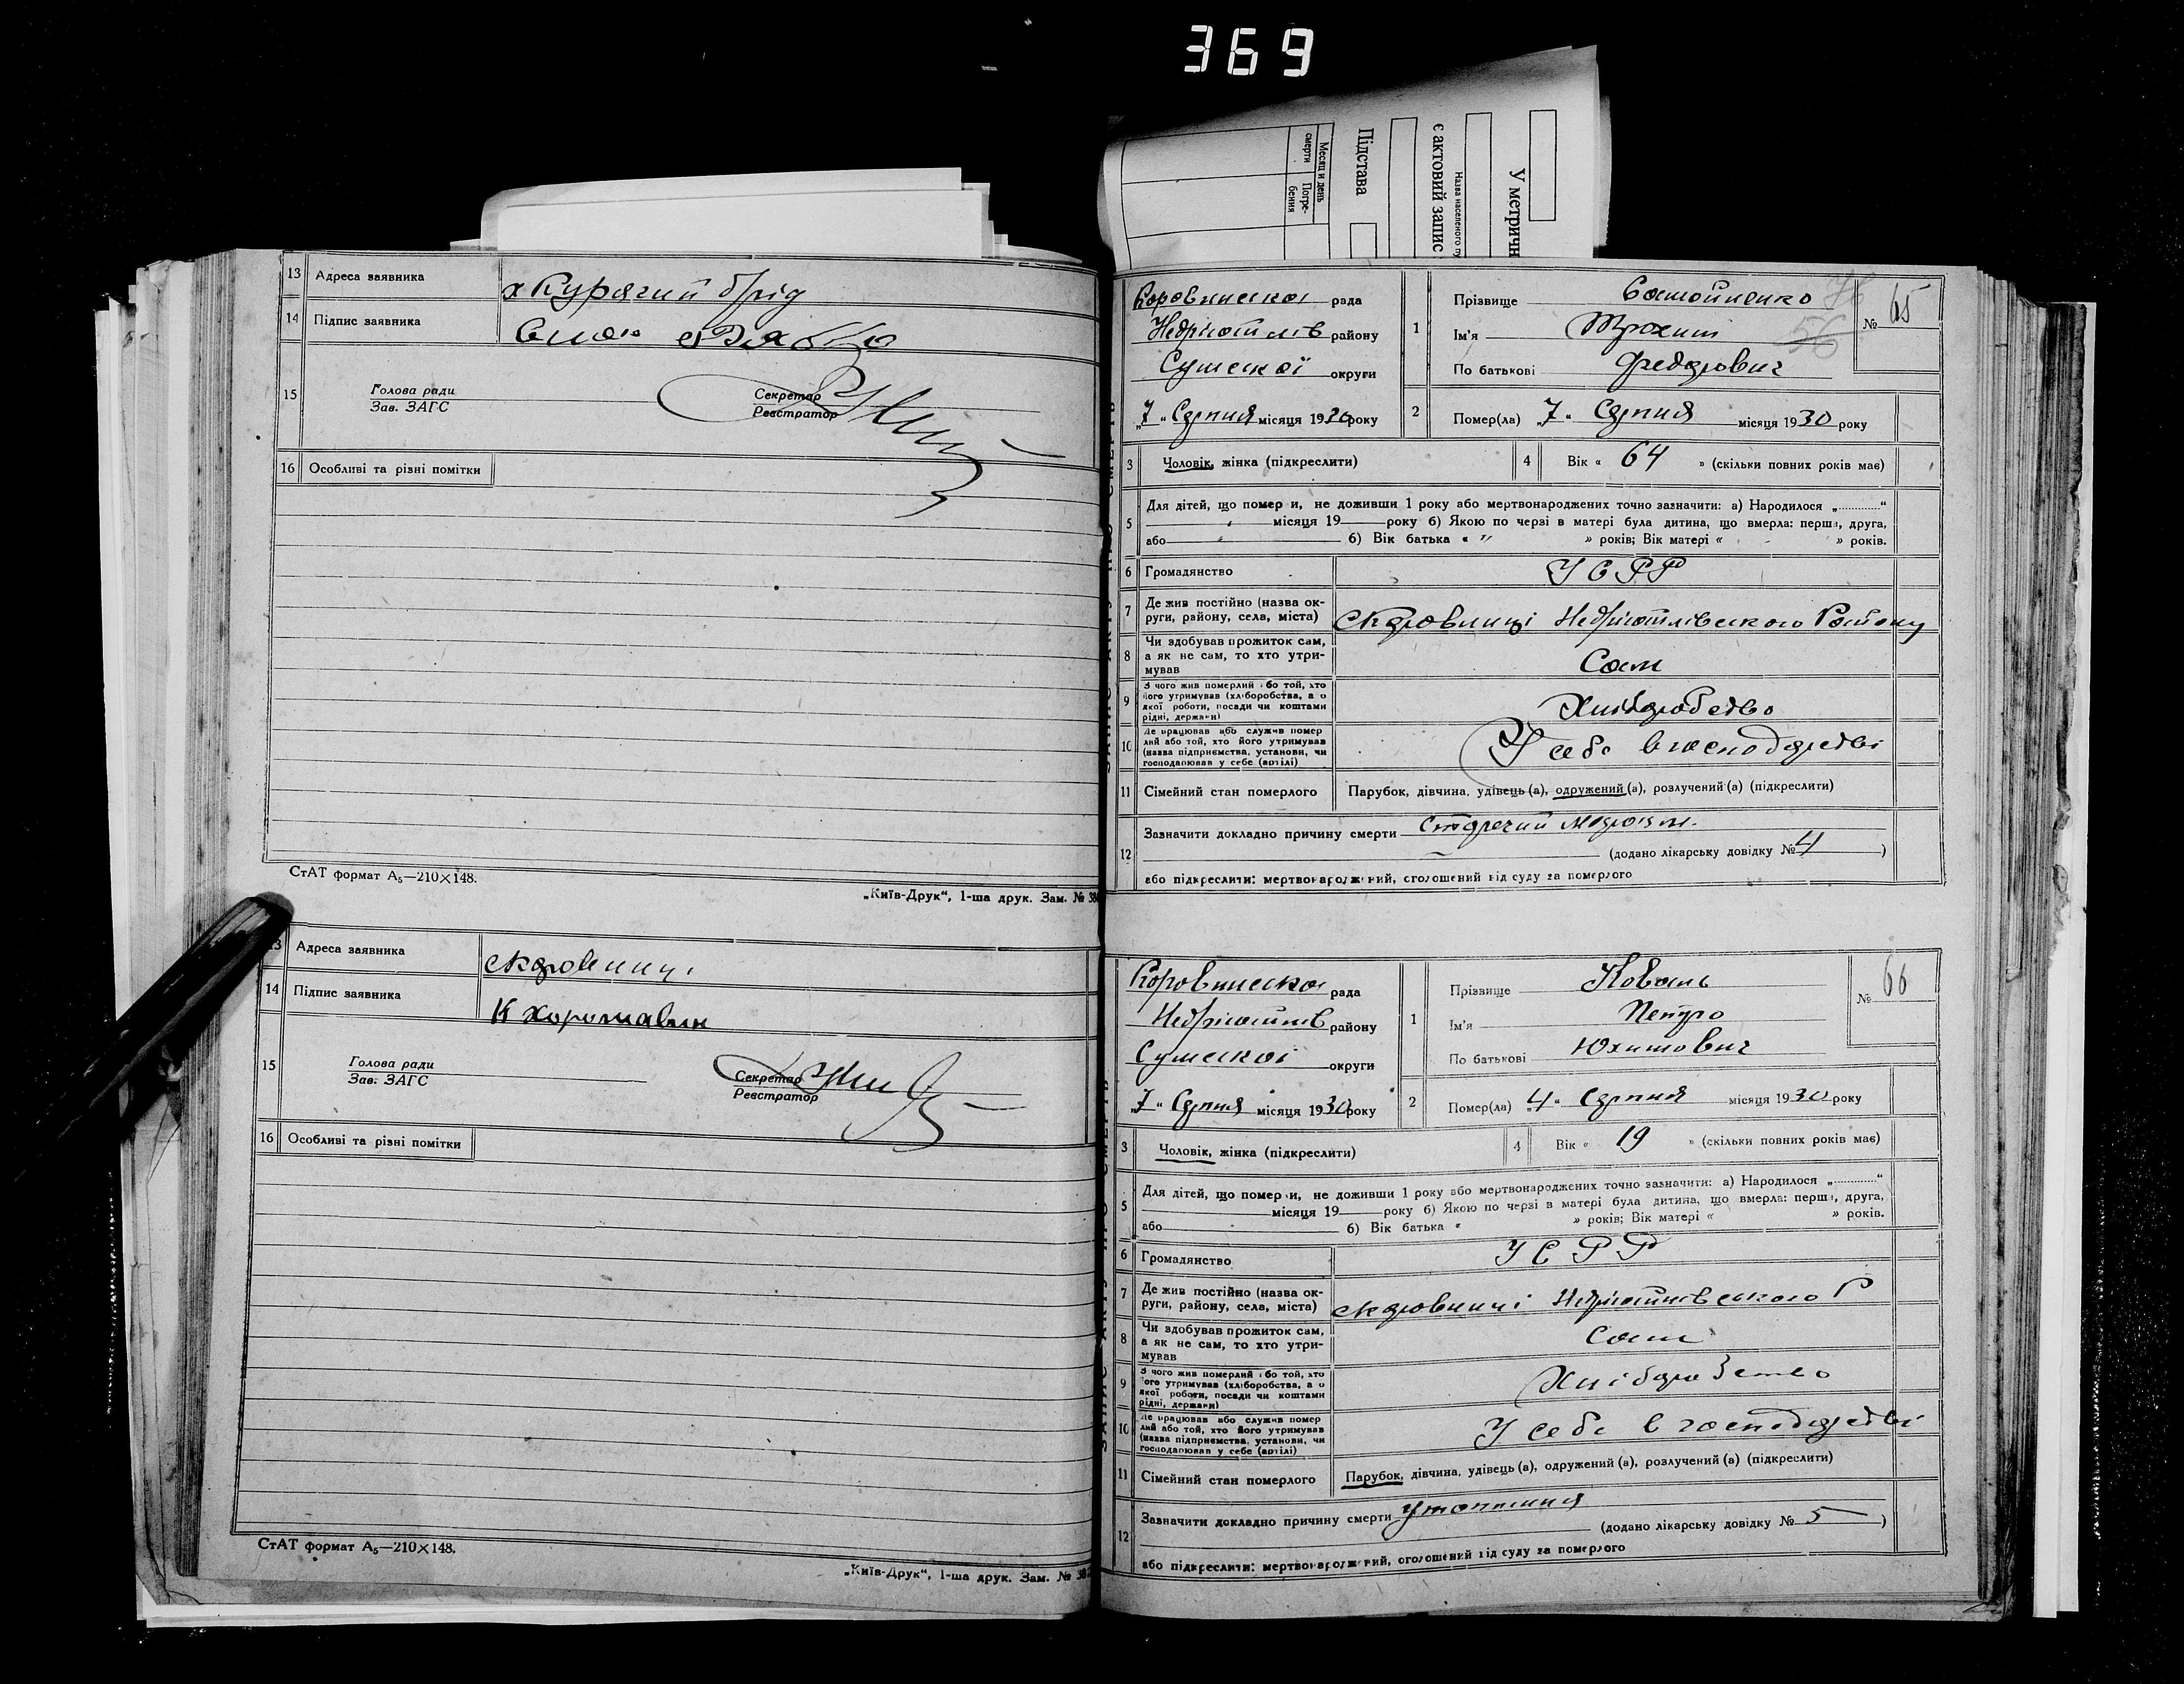 369
Месяц и день
смерти
Погре-
бения
Підстава
є актовий запис
Назва населеного пу
У метричн
13 Адреса заявника х Курячий брід
14 Підпис заявника
15 Голова ради
Зав. ЗАГС
Секретар
Реєстратор
16 Особливі та різні помітки
СтАТ формат А₅—210×148.
„Київ-Друк“, 1-ша друк. Зам. № 38
13 Адреса заявника
14 Підпис заявника К Хоропавин
15 Голова ради
Зав. ЗАГС
Секретар
Реєстратор
16 Особливі та різні помітки
СтАТ формат А₅—210×148.
„Київ-Друк“, 1-ша друк. Зам. № 38
Коровинська рада
Недригайлів району
Сумської округи
„7“ Серпня місяця 1930 року
1 Прізвище Самойленко
Ім'я Трохим
По батькові Федорович
№ 65
56
2 Помер(ла) „7“ Серпня місяця 1930 року
3 Чоловік, жінка (підкреслити)
4 Вік « 64 » (скільки повних років має)
5 Для дітей, що помер и, не доживши 1 року або мертвонароджених точно зазначити: а) Народилося „............“
місяця 19 року б) Якою по черзі в матері була дитина, що вмерла: перша, друга,
або б) Вік батька « » років; Вік матері « » років.
6 Громадянство УСРР
7 Де жив постійно (назва ок-
руги, району, села, міста) с Коровинці Недригайлівського Району
8 Чи здобував прожиток сам,
а як не сам, то хто утри-
мував Сам
9 З чого жив померлий або той, хто
його утримував (хліборобства, а о
якої роботи, посади чи коштами
рідні, держави) Хліборобство
10 Де працював або служив помер
лий або той, хто його утримував
(назва підприємства, установи, чи
господарював у себе (артілі) У себе в господарстві
11 Сімейний стан померлого Парубок, дівчина, удівець (а), одружений (а), розлучений (а) (підкреслити)
12 Зазначити докладно причину смерти Старечий маразм.
(додано лікарську довідку № 4 )
або підкреслити: мертвонароджений, оголошений від суду за померлого
Коровинська рада
Недригайлів району
Сумської округи
„7“ Серпня місяця 1930 року
1 Прізвище Коваль
Ім'я Петро
По батькові Юхимович
№ 66
2 Помер(ла) „4“ Серпня місяця 1930 року
3 Чоловік, жінка (підкреслити)
4 Вік « 19 » (скільки повних років має)
5 Для дітей, що помер и, не доживши 1 року або мертвонароджених точно зазначити: а) Народилося „............“
місяця 19 року б) Якою по черзі в матері була дитина, що вмерла: перша, друга,
або б) Вік батька « » років; Вік матері « » років.
6 Громадянство УСРР
7 Де жив постійно (назва ок-
руги, району, села, міста) с Коровинці Недригайлівського Р
8 Чи здобував прожиток сам,
а як не сам, то хто утри-
мував Сам
9 З чого жив померлий або той, хто
його утримував (хліборобства, а о
якої роботи, посади чи коштами
рідні, держави) Хліборобство
10 Де працював або служив помер
лий або той, хто його утримував
(назва підприємства, установи, чи
господарював у себе (артілі) У себе в господарстві
11 Сімейний стан померлого Парубок, дівчина, удівець (а), одружений (а), розлучений (а) (підкреслити)
12 Зазначити докладно причину смерти утоплення
(додано лікарську довідку № 5 )
або підкреслити: мертвонароджений, оголошений від суду за померлого